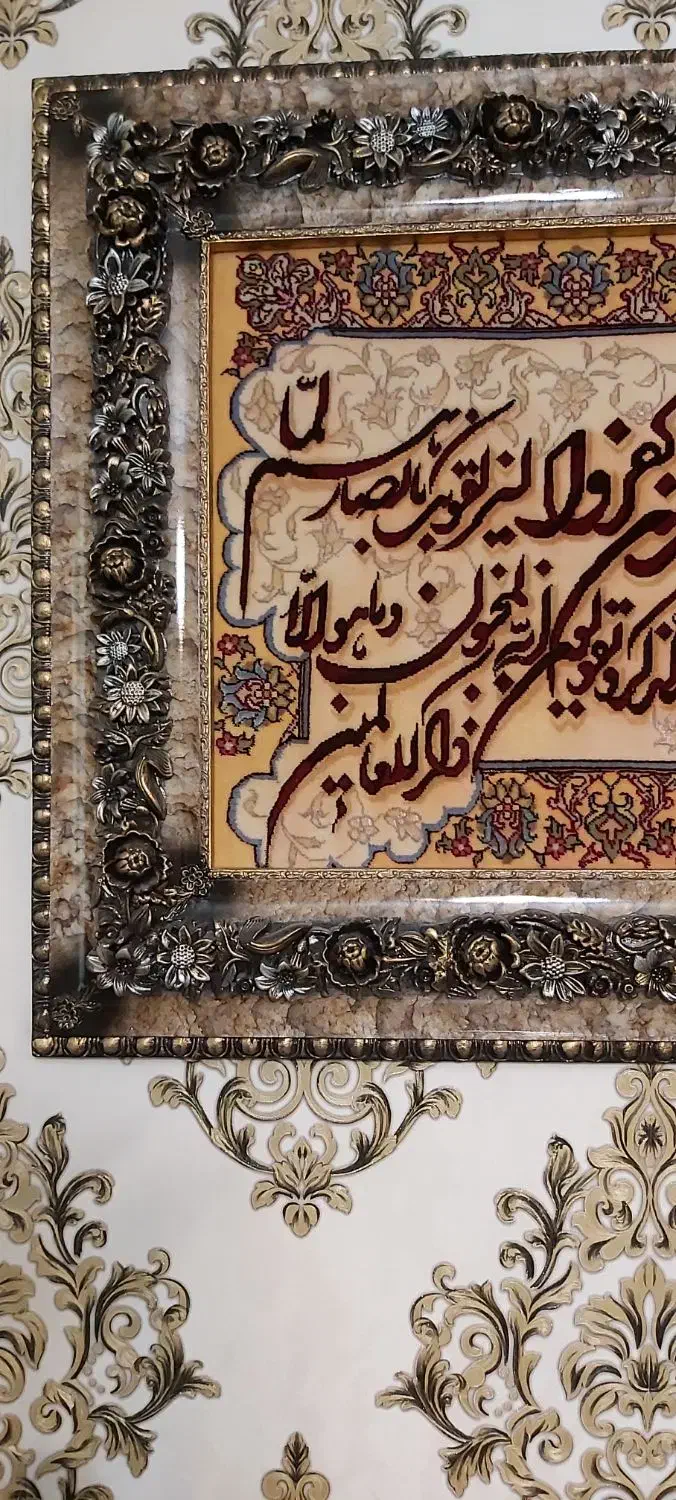 كفروا ليزلقونک بابصارهم لمّا
ويقولون انّه لمجنون وما هو الّا
ذكر للعالمين